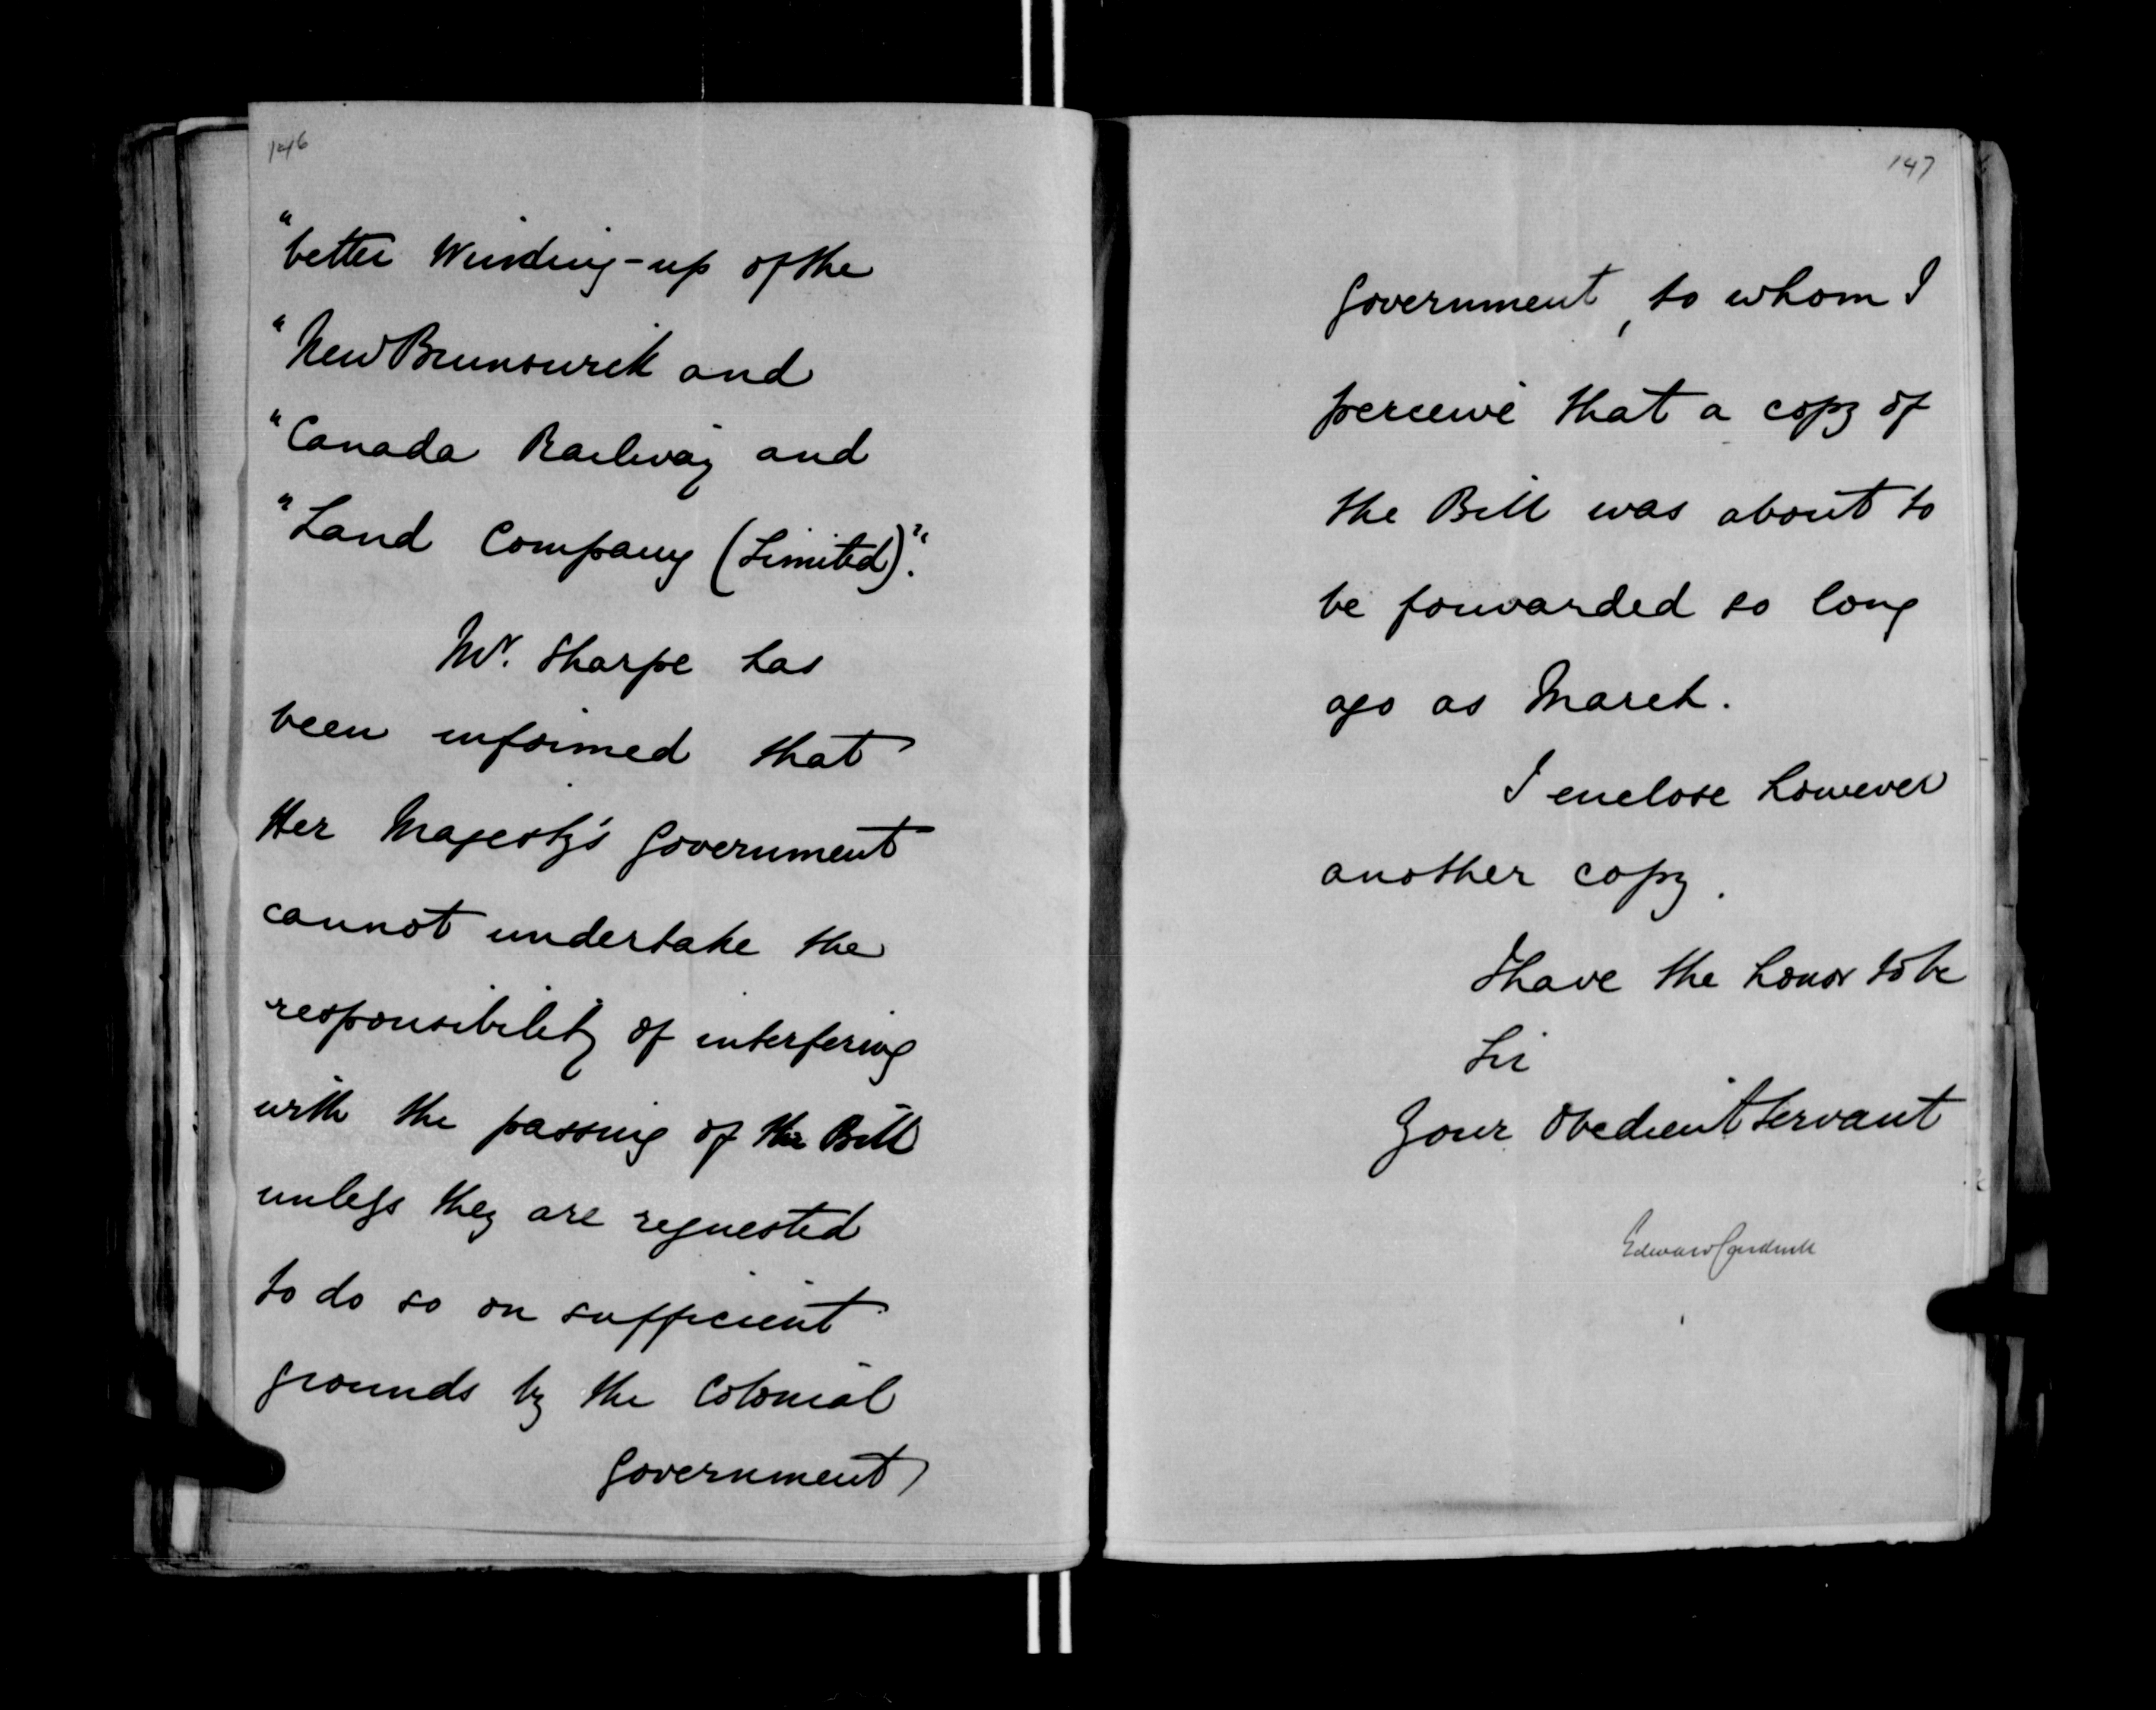 146
"better Winding-up of the
"New Brunswick and
"Canada Railway and
"Land Company (Limited)."
Mr. Sharpe has
been informed that
Her Majesty's Government
cannot undertake the
responsibility of interfering
with the passing of the Bill
unless they are requested
to do so on sufficient
grounds by the Colonial
Government
147
Government, to whom I
perceive that a copy of
the Bill was about to
be forwarded so long
ago as March.
I enclose however
another copy.
I have the honor to be
Sir
Your Obedient Servant
Edward Cardwell